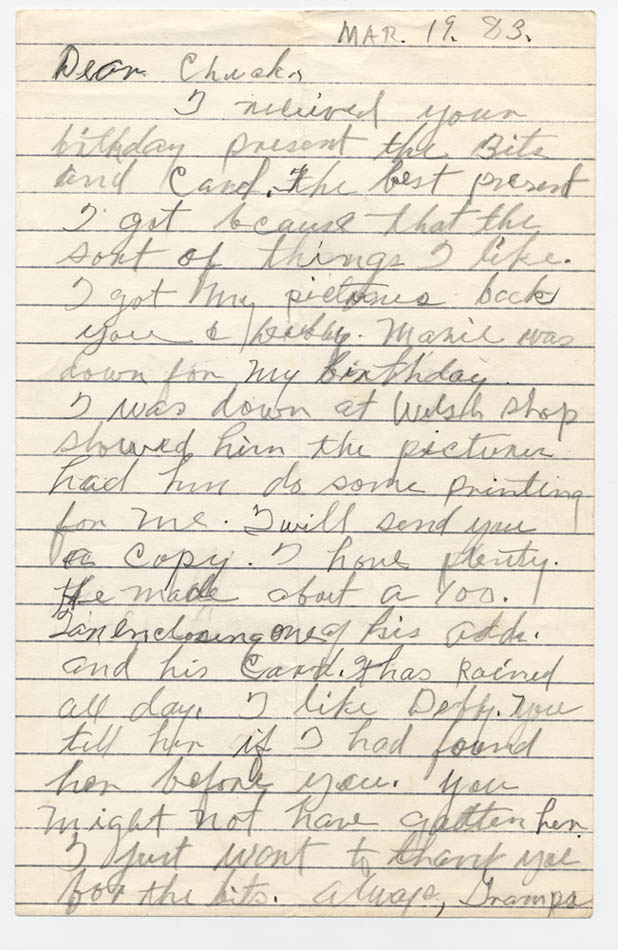 MAR. 19. 83.
Dear Chuck,
I recieved your
bithday present the Bits
and Card. The best present
I got bcause that the
sort of things I like.
I got My pictures back
you & Marie was
down for My birthday.
I was down at Welsh Shop
showed him the pictures
had him do some printing
for me. I will send you
a Copy. I have plenty.
He made about a 100.
I an Enclosing one of his adds.
and his Card. It has Rained
all day. I like Debby. You
tell her if I had found
her before you. you
might not have gotten her
I just want to thank you
for the bits. always, Grampa